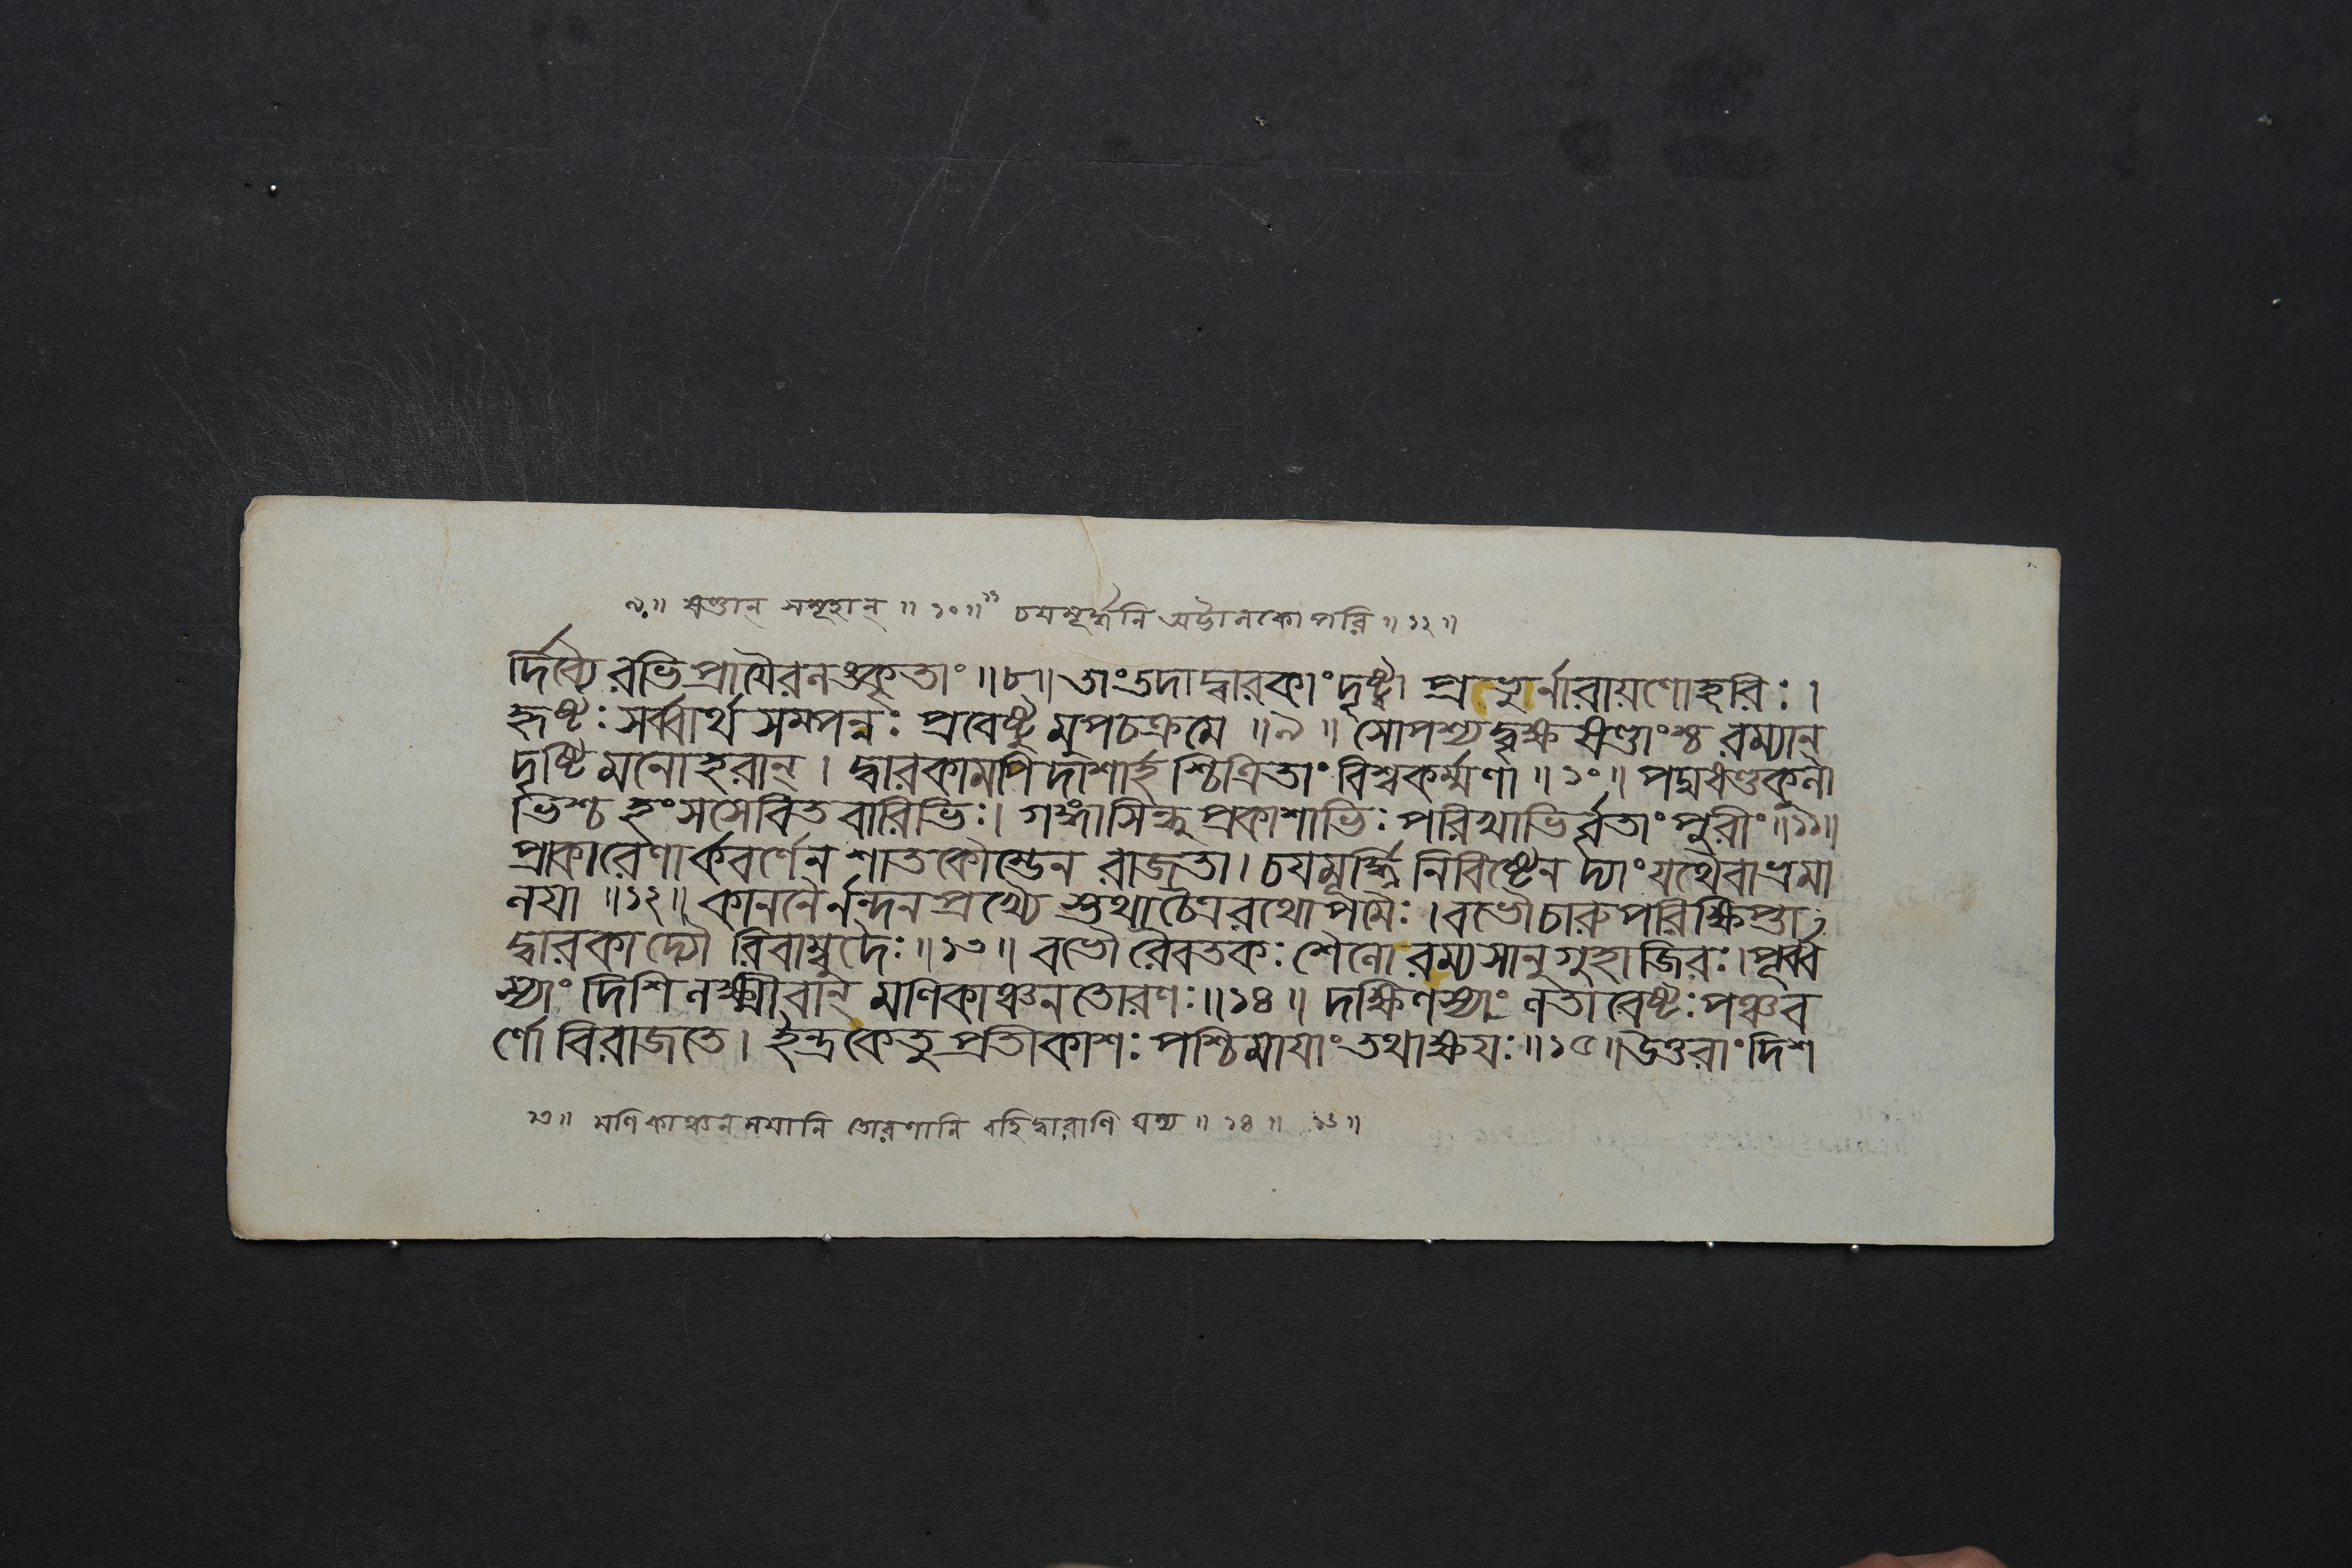 ৯॥ ষণ্ডান্ সমূহান্ ॥ ১০॥ ১১ চয়মূর্দ্ধনি অট্টালকোপরি ॥ ১২ ॥
র্দিব্যৈ রভিপ্রায়ৈরলঙ্কৃতাং ॥৮॥ তাং তদা দ্বারকাং দৃষ্ট্বা প্রভুর্নারায়ণো হরিঃ ।
হৃষ্টঃ সর্ব্বার্থ সম্পন্নঃ প্রবেষ্টু মুপচক্রমে ॥৯॥ সোপশ্যদ্বৃক্ষ ষণ্ডাংশ্চ রম্যান্
দৃষ্টি মনোহরান্ । দ্বারকামপি দাশার্হ শ্চিত্রিতাং বিশ্বকর্ম্মণা ॥ ১০॥ পদ্মষণ্ডকুলা
ভিশ্চ হংসসেবিত বারিভিঃ। গঙ্গাসিন্ধু প্রকাশাভিঃ পরিখাভির্বৃতাং পুরীং ॥১১॥
প্রাকারেণার্কবর্ণেন শাতকৌম্ভেন রাজতা। চয়মূর্দ্ধ্নি নিবিষ্টেন দ্যাং যথৈবাভ্রমা
লয়া ॥১২॥ কাননৈর্নন্দনপ্রখ্যৈ স্তথা চৈত্ররথোপমৈঃ । বভৌ চারু পরিক্ষিপ্তা
দ্বারকা দ্যৌ রিবাম্বুদৈঃ ॥১৩॥ বভৌ রৈবতকঃ শৈলো রম্যসানু গুহাজিরঃ। পূর্ব্ব
স্যাং দিশি লক্ষ্মীবান্ মণিকাঞ্চনতোরণঃ ॥১৪॥ দক্ষিণস্যাং লতাবেষ্টঃ পঞ্চব
র্ণো বিরাজতে। ইন্দ্রকেতু প্রতীকাশঃ পশ্চিমায়াং তথাক্ষয়ঃ ॥১৫॥ উত্তরাং দিশ
১৩॥ মণিকাঞ্চনময়ানি তোরণানি বহিদ্বারাণি যস্য ॥ ১৪ ॥ ১৫॥